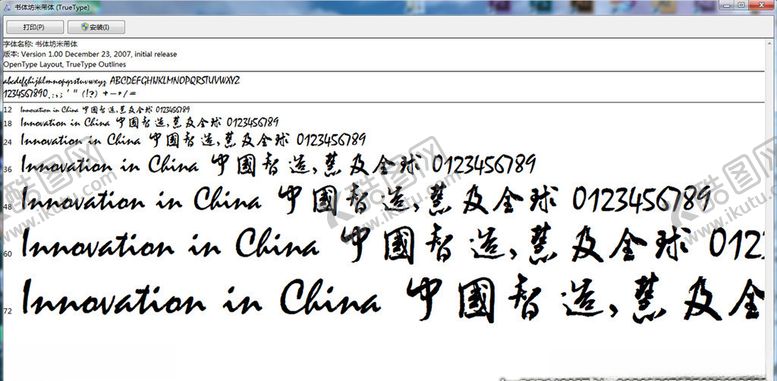 书体坊米芾体 (TrueType)
打印(P) 安装(I)
字体名称: 书体坊米芾体
版本: Version 1.00 December 23, 2007, initial release
OpenType Layout, TrueType Outlines
abcdefghijklmnopqrstuvwxyz ABCDEFGHIJKLMNOPQRSTUVWXYZ
1234567890.:,; ' " (!?) +-*/=
12 Innovation in China 中國智造,慧及全球 0123456789
18 Innovation in China 中國智造,慧及全球 0123456789
24 Innovation in China 中國智造,慧及全球 0123456789
36 Innovation in China 中國智造,慧及全球 0123456789
48 Innovation in China 中國智造,慧及全球 0123456789
60 Innovation in China 中國智造,慧及全球 012
72 Innovation in China 中國智造,慧及全
酷图网
www.ikutu.com
酷图网
www.ikutu.com
酷图网
www.ikutu.com